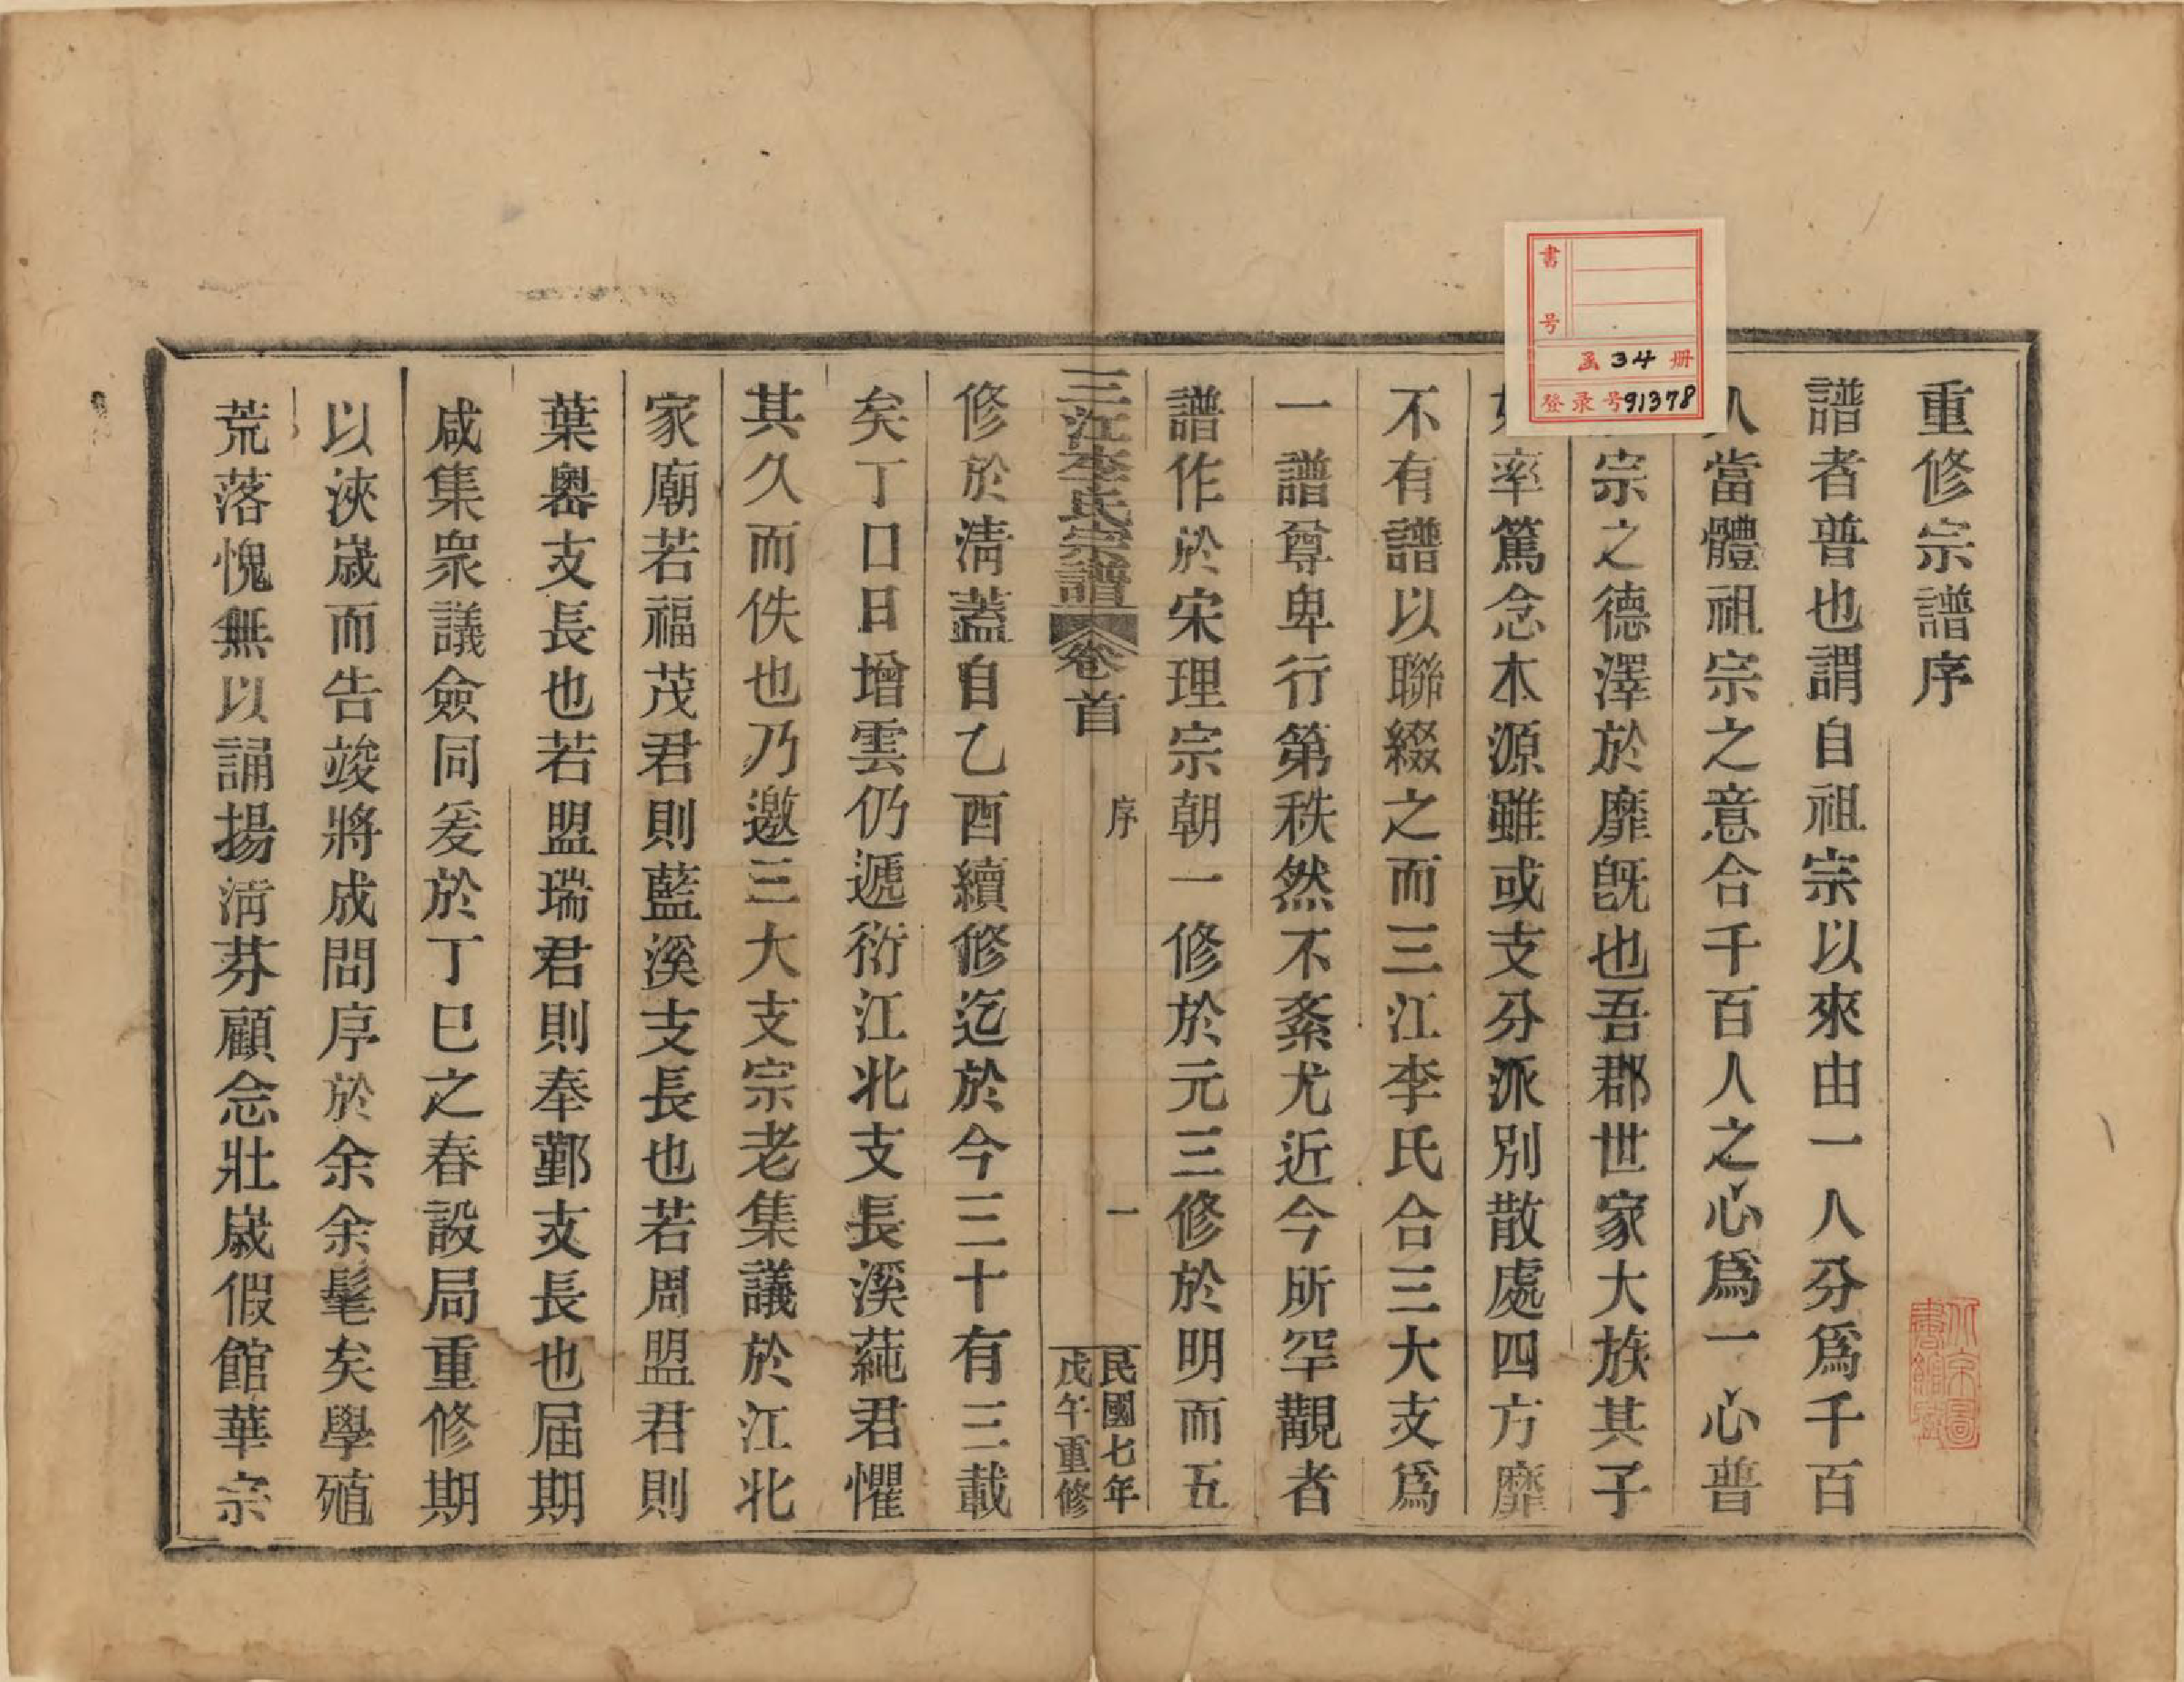 重修宗譜序
譜者普也謂自祖宗以來由一人分爲千百
人當體祖宗之意合千百人之心爲一心普
宗之德澤於靡旣也吾郡世家大族其子
率篤念木源雖或支分派別散處四方靡
不有譜以聯綴之而三江李氏合三大支爲
一譜尊卑行第秩然不紊尤近今所罕觀者
譜作於宋理宗朝一修於元三修於明而五
三江李氏宗譜 卷首 序 一 民國七年
戊午重修
修於淸蓋自乙酉續修迄於今三十有三載
矣丁口日增雲仍遞衍江北支長溪蒓君懼
其久而佚也乃邀三大支宗老集議於江北
家廟若福茂君則藍溪支長也若周盟君則
葉嶴支長也若盟瑞君則奉鄞支長也届期
咸集衆議僉同爰於丁巳之春設局重修期
以浹歲而告竣將成問序於余余髦矣學殖
荒落愧無以誦揚淸芬顧念壯歲假館華宗
書号
函 34 册
登录号 91378
北京圖書館藏